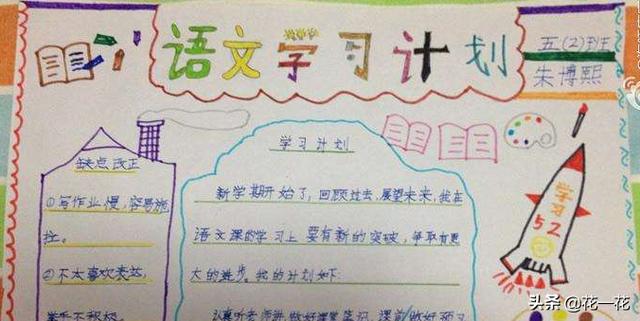 语文学习计划
五(2)班
朱博熙
缺点改正
①写作业慢,容易拖
拉。
②不太喜欢表达,
举手不积极。
学习计划
新学期开始了,回顾过去,展望未来,我在
语文课的学习上要有新的突破,争取有更
大的进步。我的计划如下:
认真听老师讲,做好课堂笔记,课前做好预习
学习
52
头条@花一花